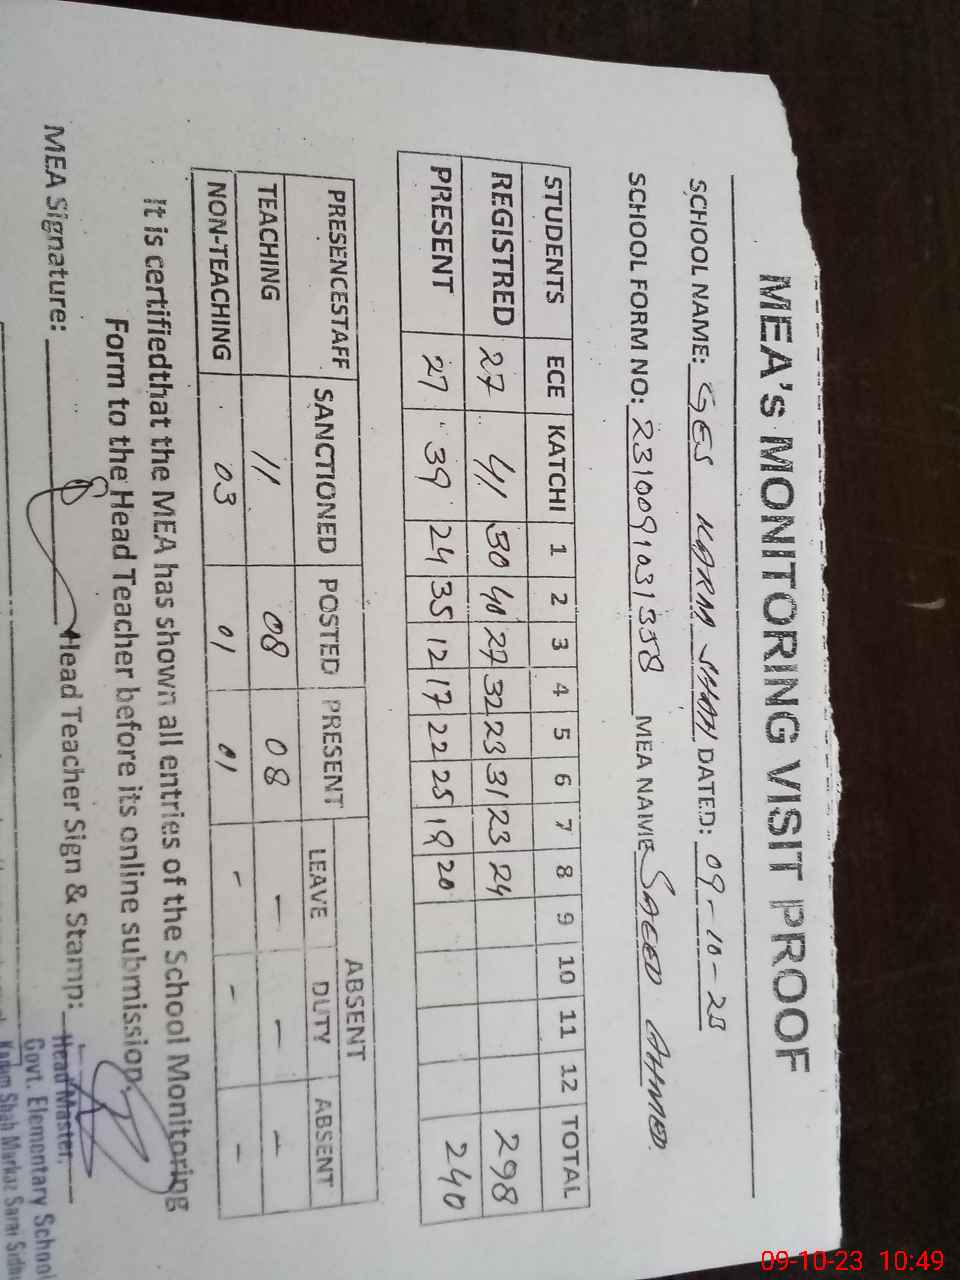 MEA's MONITORING VISIT PROOF
SCHOOL NAME: GES KARM SHAH DATED: 09-10-23
SCHOOL FORM NO: 2310091031358 MEA NAME SAEED AHMED
STUDENTS ECE KATCHI 1 2 3 4 5 6 7 8 9 10 11 12 TOTAL
REGISTRED 27 41 30 40 27 32 23 31 23 24 298
PRESENT 27 39 24 35 12 17 22 25 19 20 240
PRESENCESTAFF SANCTIONED POSTED PRESENT ABSENT
LEAVE DUTY ABSENT
TEACHING 11 08 08 - - -
NON-TEACHING 03 01 01 - - -
It is certifiedthat the MEA has shown all entries of the School Monitoring
Form to the Head Teacher before its online submission.
MEA Signature: Head Teacher Sign & Stamp:
Head Master,
Govt. Elementary School
Shah Markaz Sarai Sidhu
09-10-23 10:49